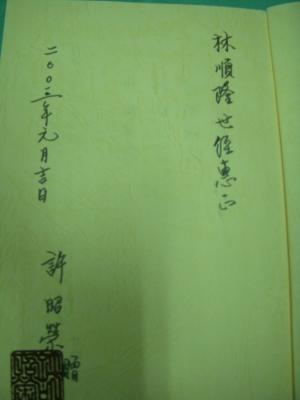 林順隆世姪惠正
二〇〇三年元月吉日
許昭榮贈